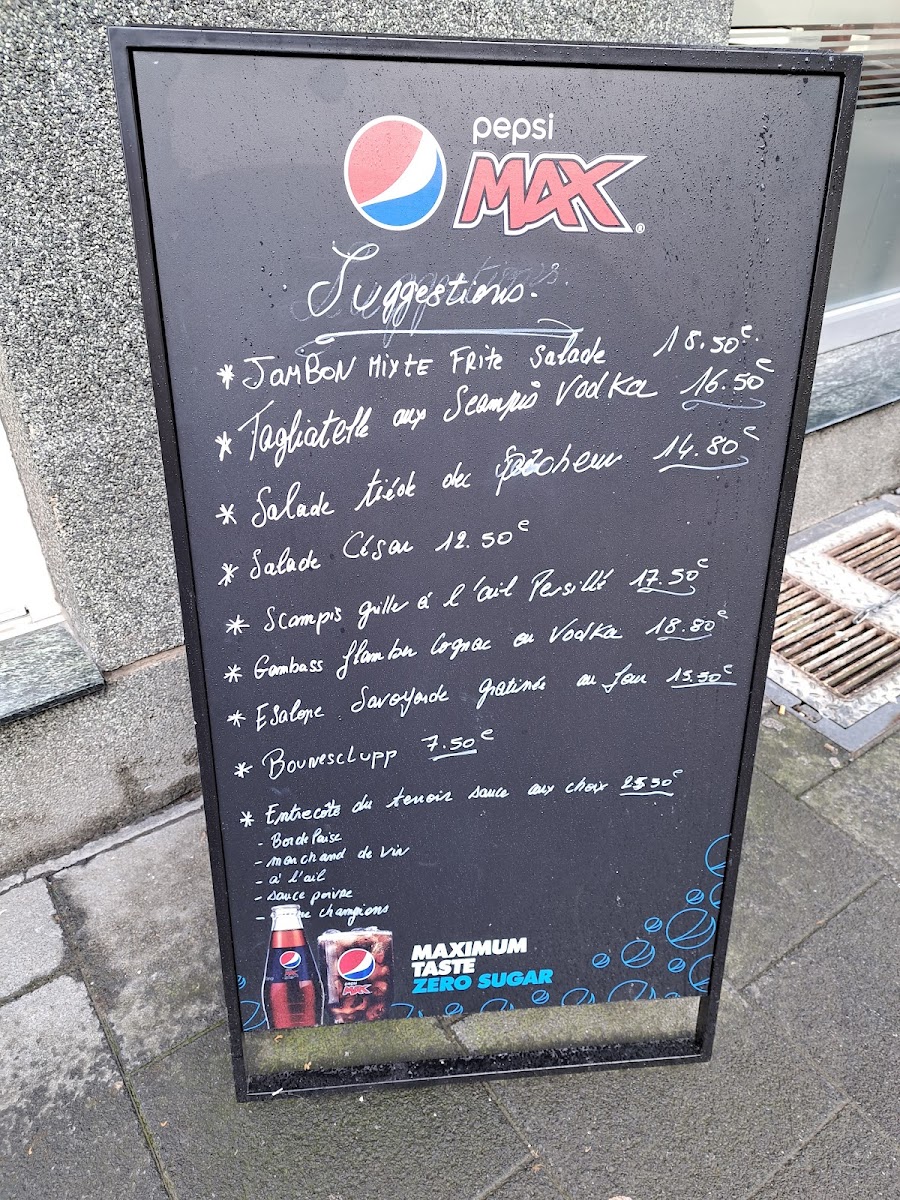 pepsi
MAX®
Suggestions.
* JAMBON MIXTE FRITE Salade 18.50€
* Tagliatelle aux Scampis Vodka 16.50€
* Salade tiéde du pêcheur 14.80€
* Salade César 12.50€
* Scampis griller à l'ail Persillé 17.50€
* Gambass flamber Cognac ou Vodka 18.80€
* ESalope Savoyarde gratinée au four 15.50€
* Bouneschlupp 7.50€
* Entrecôte du terroir sauce aux choix 25.50€
- Bordelaise
- marchand de vin
- à l'ail
- sauce poivre
- champions
pepsi
MAX
MAXIMUM
TASTE
ZERO SUGAR